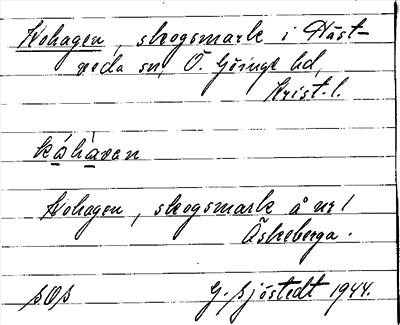 Kohagen, skogsmark i Häst-
veda sn, Ö. Göinge hd,
Krist. l.
kåhávan
Kohagen, skogsmark å nr 1
Äskeberga.
sOs
G. Sjöstedt 1944.